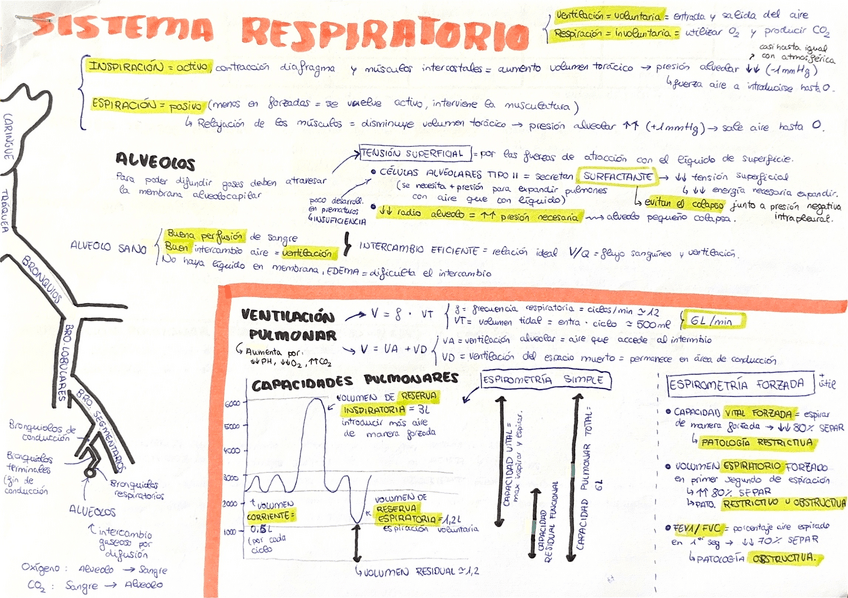 SISTEMA RESPIRATORIO
Ventilación = voluntaria = entrada y salida del aire
Respiración = involuntaria = utilizar O2 y producir CO2
INSPIRACIÓN = activa contracción diafragma y músculos intercostales = aumento volumen torácico → presión alveolar ↓↓ (-1mmHg)
casi hasta igual
con atmosférica
↳ fuerza aire a introducirse hasta 0.
ESPIRACIÓN = pasiva (menos en forzadas = se vuelve activo, interviene la musculatura)
↳ Relajación de los músculos = disminuye volumen torácico → presión alveolar ↑↑ (+1mmHg) → sale aire hasta 0.
LARINGUE
TRÁQUEA
BRONQUIOS
BRO LOBULARES
BRO SEGMENTARIOS
Bronquiolos de
conducción
Bronquiolos
terminales
(fin de
conducción
Bronquiolos
respiratorios
ALVEOLOS
↳ intercambio
gaseoso por
difusión
Oxígeno: Alveolo → Sangre
CO2: Sangre → Alveolo
ALVEOLOS
Para poder difundir gases deben atravesar
la membrana alveolocapilar
TENSIÓN SUPERFICIAL = por las fuerzas de atracción con el líquido de superficie.
• CÉLULAS ALVEOLARES TIPO II = secretan SURFACTANTE → ↓↓ tensión superficial
(se necesita + presión para expandir pulmones
con aire que con líquido)
↳ ↓↓ energía necesaria expandir.
↳ evitan el colapso junto a presión negativa
intrapleural.
poco desarroll.
en prematuros
↳ INSUFICIENCIA
• ↓↓ radio alveolo = ↑↑ presión necesaria → alveolo pequeño colapsa.
ALVEOLO SANO
Buena perfusión de sangre
Buen intercambio aire = ventilación
No haya líquido en membrana, EDEMA = dificulta el intercambio
INTERCAMBIO EFICIENTE = relación ideal V/Q = flujo sanguíneo y ventilación.
VENTILACIÓN
PULMONAR
↳ Aumenta por:
↓↓PH, ↓↓O2, ↑↑CO2
→ V = f · VT
f = frecuencia respiratoria = ciclos/min ≃ 12
VT = volumen tidal = entra · ciclo ≃ 500ml
6L/min
→ V = VA + VD
VA = ventilación alveolar = aire que accede al intermbio
VD = ventilación del espacio muerto = permanece en área de conducción
CAPACIDADES PULMONARES
ESPIROMETRÍA SIMPLE
6000
5000
4000
3000
2000
1000
VOLUMEN DE RESERVA
INSPIRATORIA = 3L
introducir más aire
de manera forzada
VOLUMEN
CORRIENTE =
0.5L
(por cada
ciclo
VOLUMEN DE
RESERVA
ESPIRATORIA = 1,2L
espiración voluntaria
↳ VOLUMEN RESIDUAL ≃ 1,2
CAPACIDAD VITAL =
max inspirar y espirar.
CAPACIDAD
RESIDUAL FUNCIONAL
CAPACIDAD PULMONAR TOTAL =
6L
ESPIROMETRÍA FORZADA + útil
• CAPACIDAD VITAL FORZADA = espirar
de manera forzada → ↓↓ 80% SEPAR
↳ PATOLOGÍA RESTRICTIVA
• VOLUMEN ESPIRATORIO FORZADO
en primer segundo de espiración
↳ ↑↑ 80% SEPAR
↳ PATO RESTRICTIVO U OBSTRUCTIVA
• FEV1/FVC = porcentaje aire espirado
en 1er seg → ↓↓ 70% SEPAR
↳ PATOLOGÍA OBSTRUCTIVA.